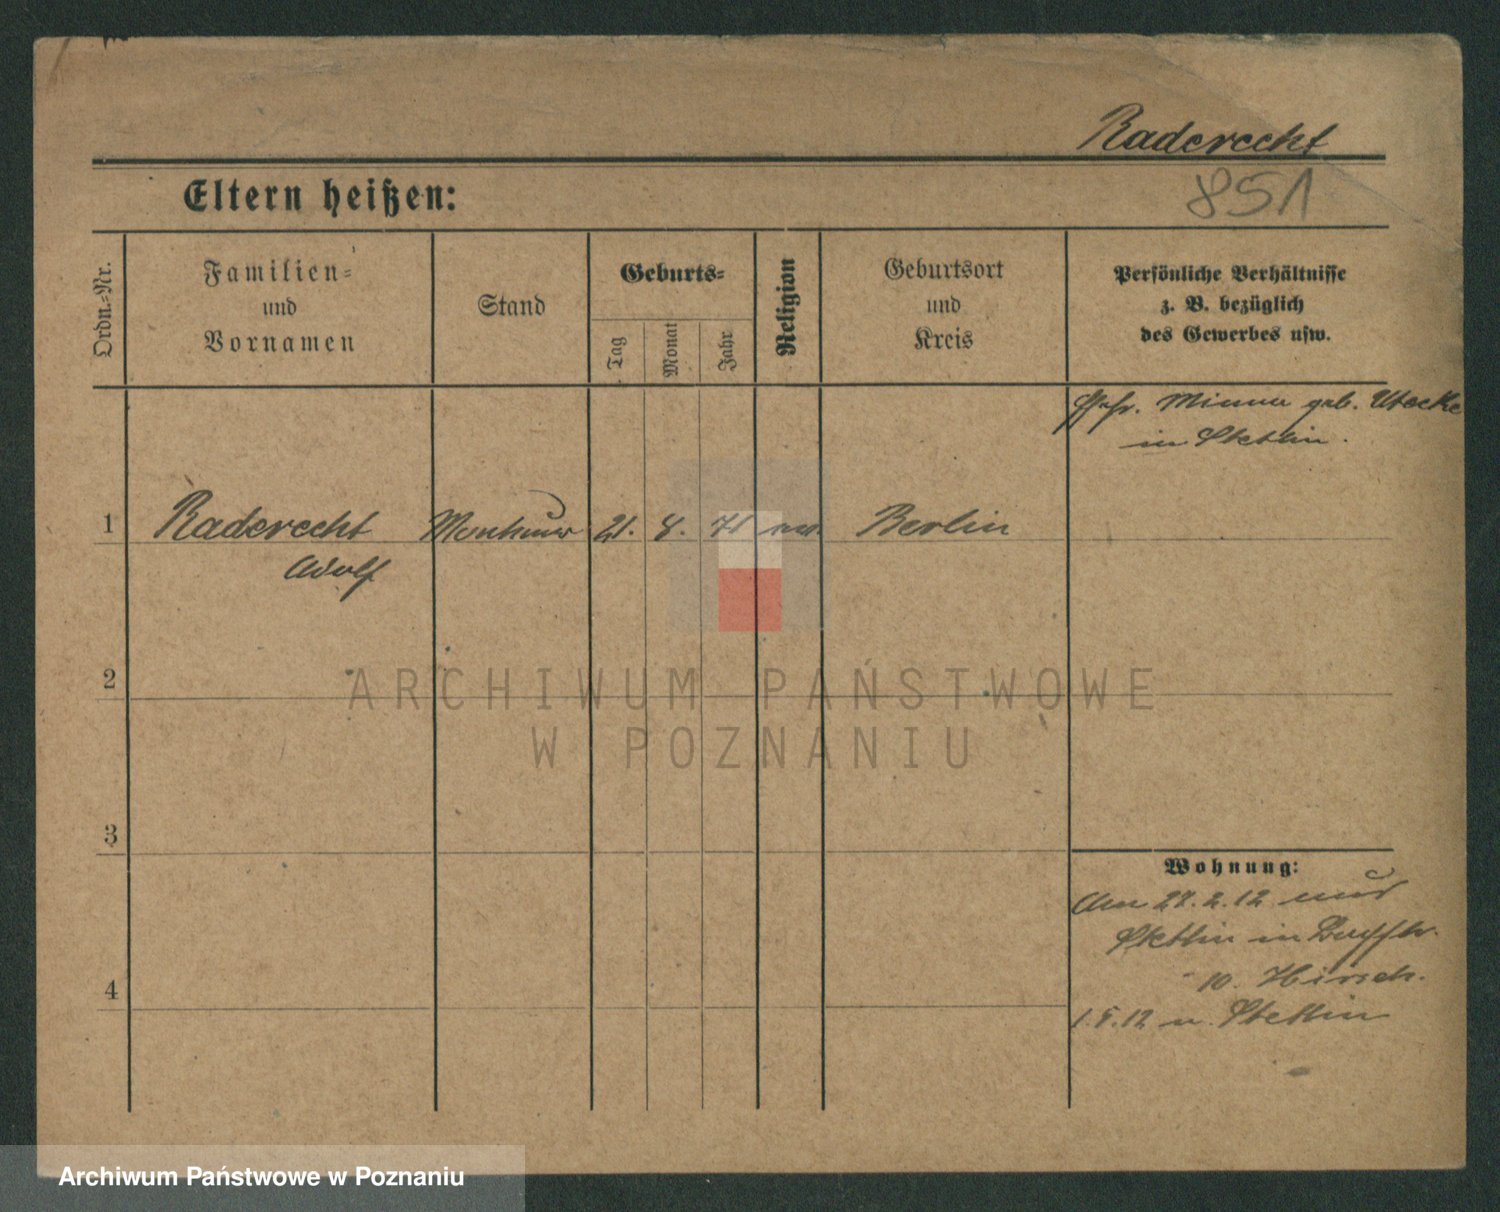 Raderecht
851
Eltern heißen:
Ordn.-Nr.
Familien-
und
Vornamen
Stand
Geburts-
Tag
Monat
Jahr
Religion
Geburtsort
und
Kreis
Persönliche Verhältnisse
z. B. bezüglich
des Gewerbes usw.
Minna geb. Utecke
in Stettin.
1 Raderecht Monteur 21. 8. 71 ev. Berlin
Adolf
2
3
4
Wohnung:
Am 27.2.12 aus
Stettin in
10. Hirsch.
1.5.12 n. Stettin
ARCHIWUM PAŃSTWOWE
W POZNANIU
Archiwum Państwowe w Poznaniu